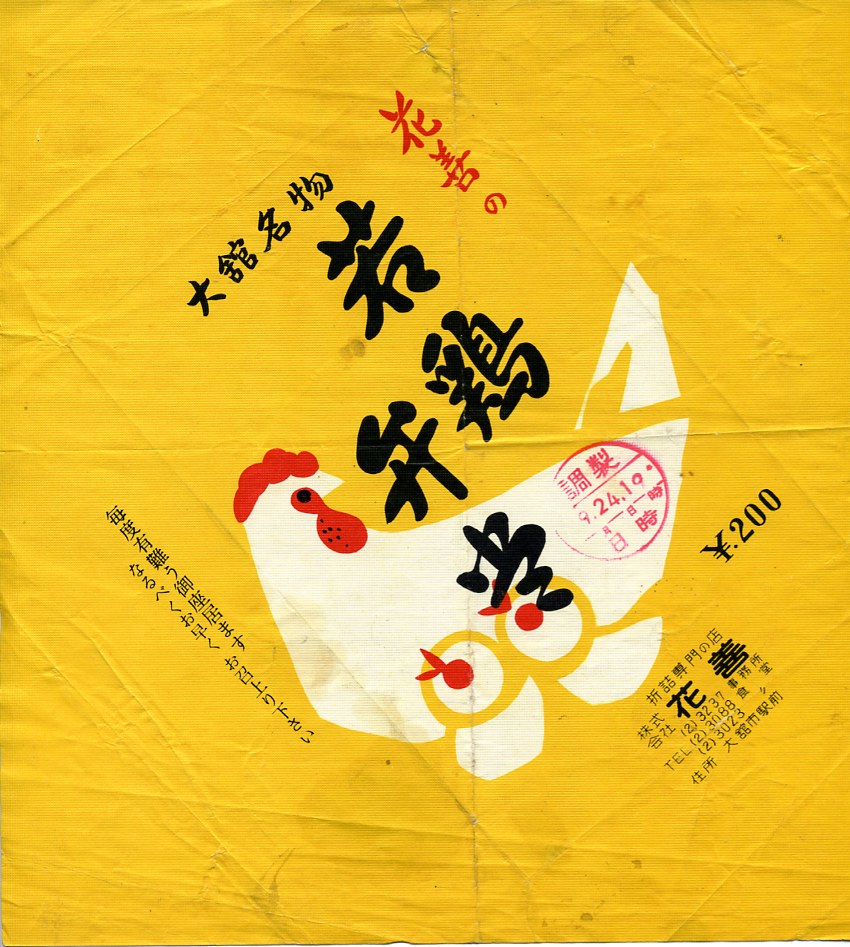 花善の
大館名物
若鶏弁当
毎度有難う御座居ます
なるべくお早くお召上り下さい
調製
9.24.19.
月 日 時
日時
¥.200
折詰専門の店
株式会社 花善
(2)3237 事務所
TEL(2)3088 食堂
(2)3023 〃
住所 大舘市駅前